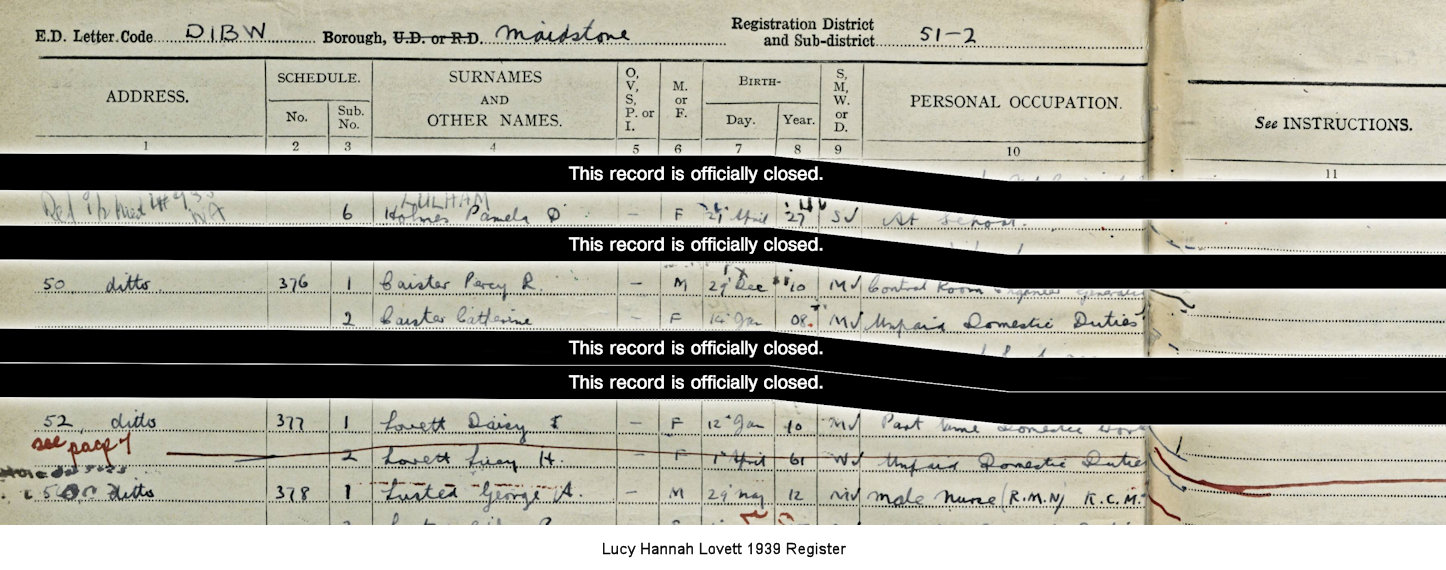 E.D. Letter Code DIBW Borough, U.D. or R.D. Maidstone Registration District and Sub-district 51-2
ADDRESS. SCHEDULE. No. Sub. No. SURNAMES AND OTHER NAMES. O, V, S, P. or I. M. or F. BIRTH- Day. Year. S, M, W. or D. PERSONAL OCCUPATION. See INSTRUCTIONS.
1 2 3 4 5 6 7 8 9 10 11
This record is officially closed.
LULHAM
6 Holmes Pamela D - F 21 April 27 S At School.
This record is officially closed.
50 ditto 376 1 Caister Percy R. - M 29 Dec 10 M Control Room Engineer
2 Caister Catherine - F 14 Jan 08 M Unpaid Domestic Duties
This record is officially closed.
This record is officially closed.
52 ditto 377 1 Lovett Daisy I - F 12 Jan 10 M Part time Domestic Work
see page 7
2 Lovett Lucy H. - F 1 April 61 W Unpaid Domestic Duties
ditto 378 1 Lusted George A. - M 29 May 12 M male nurse (R.M.N) K.C.M.
Lucy Hannah Lovett 1939 Register